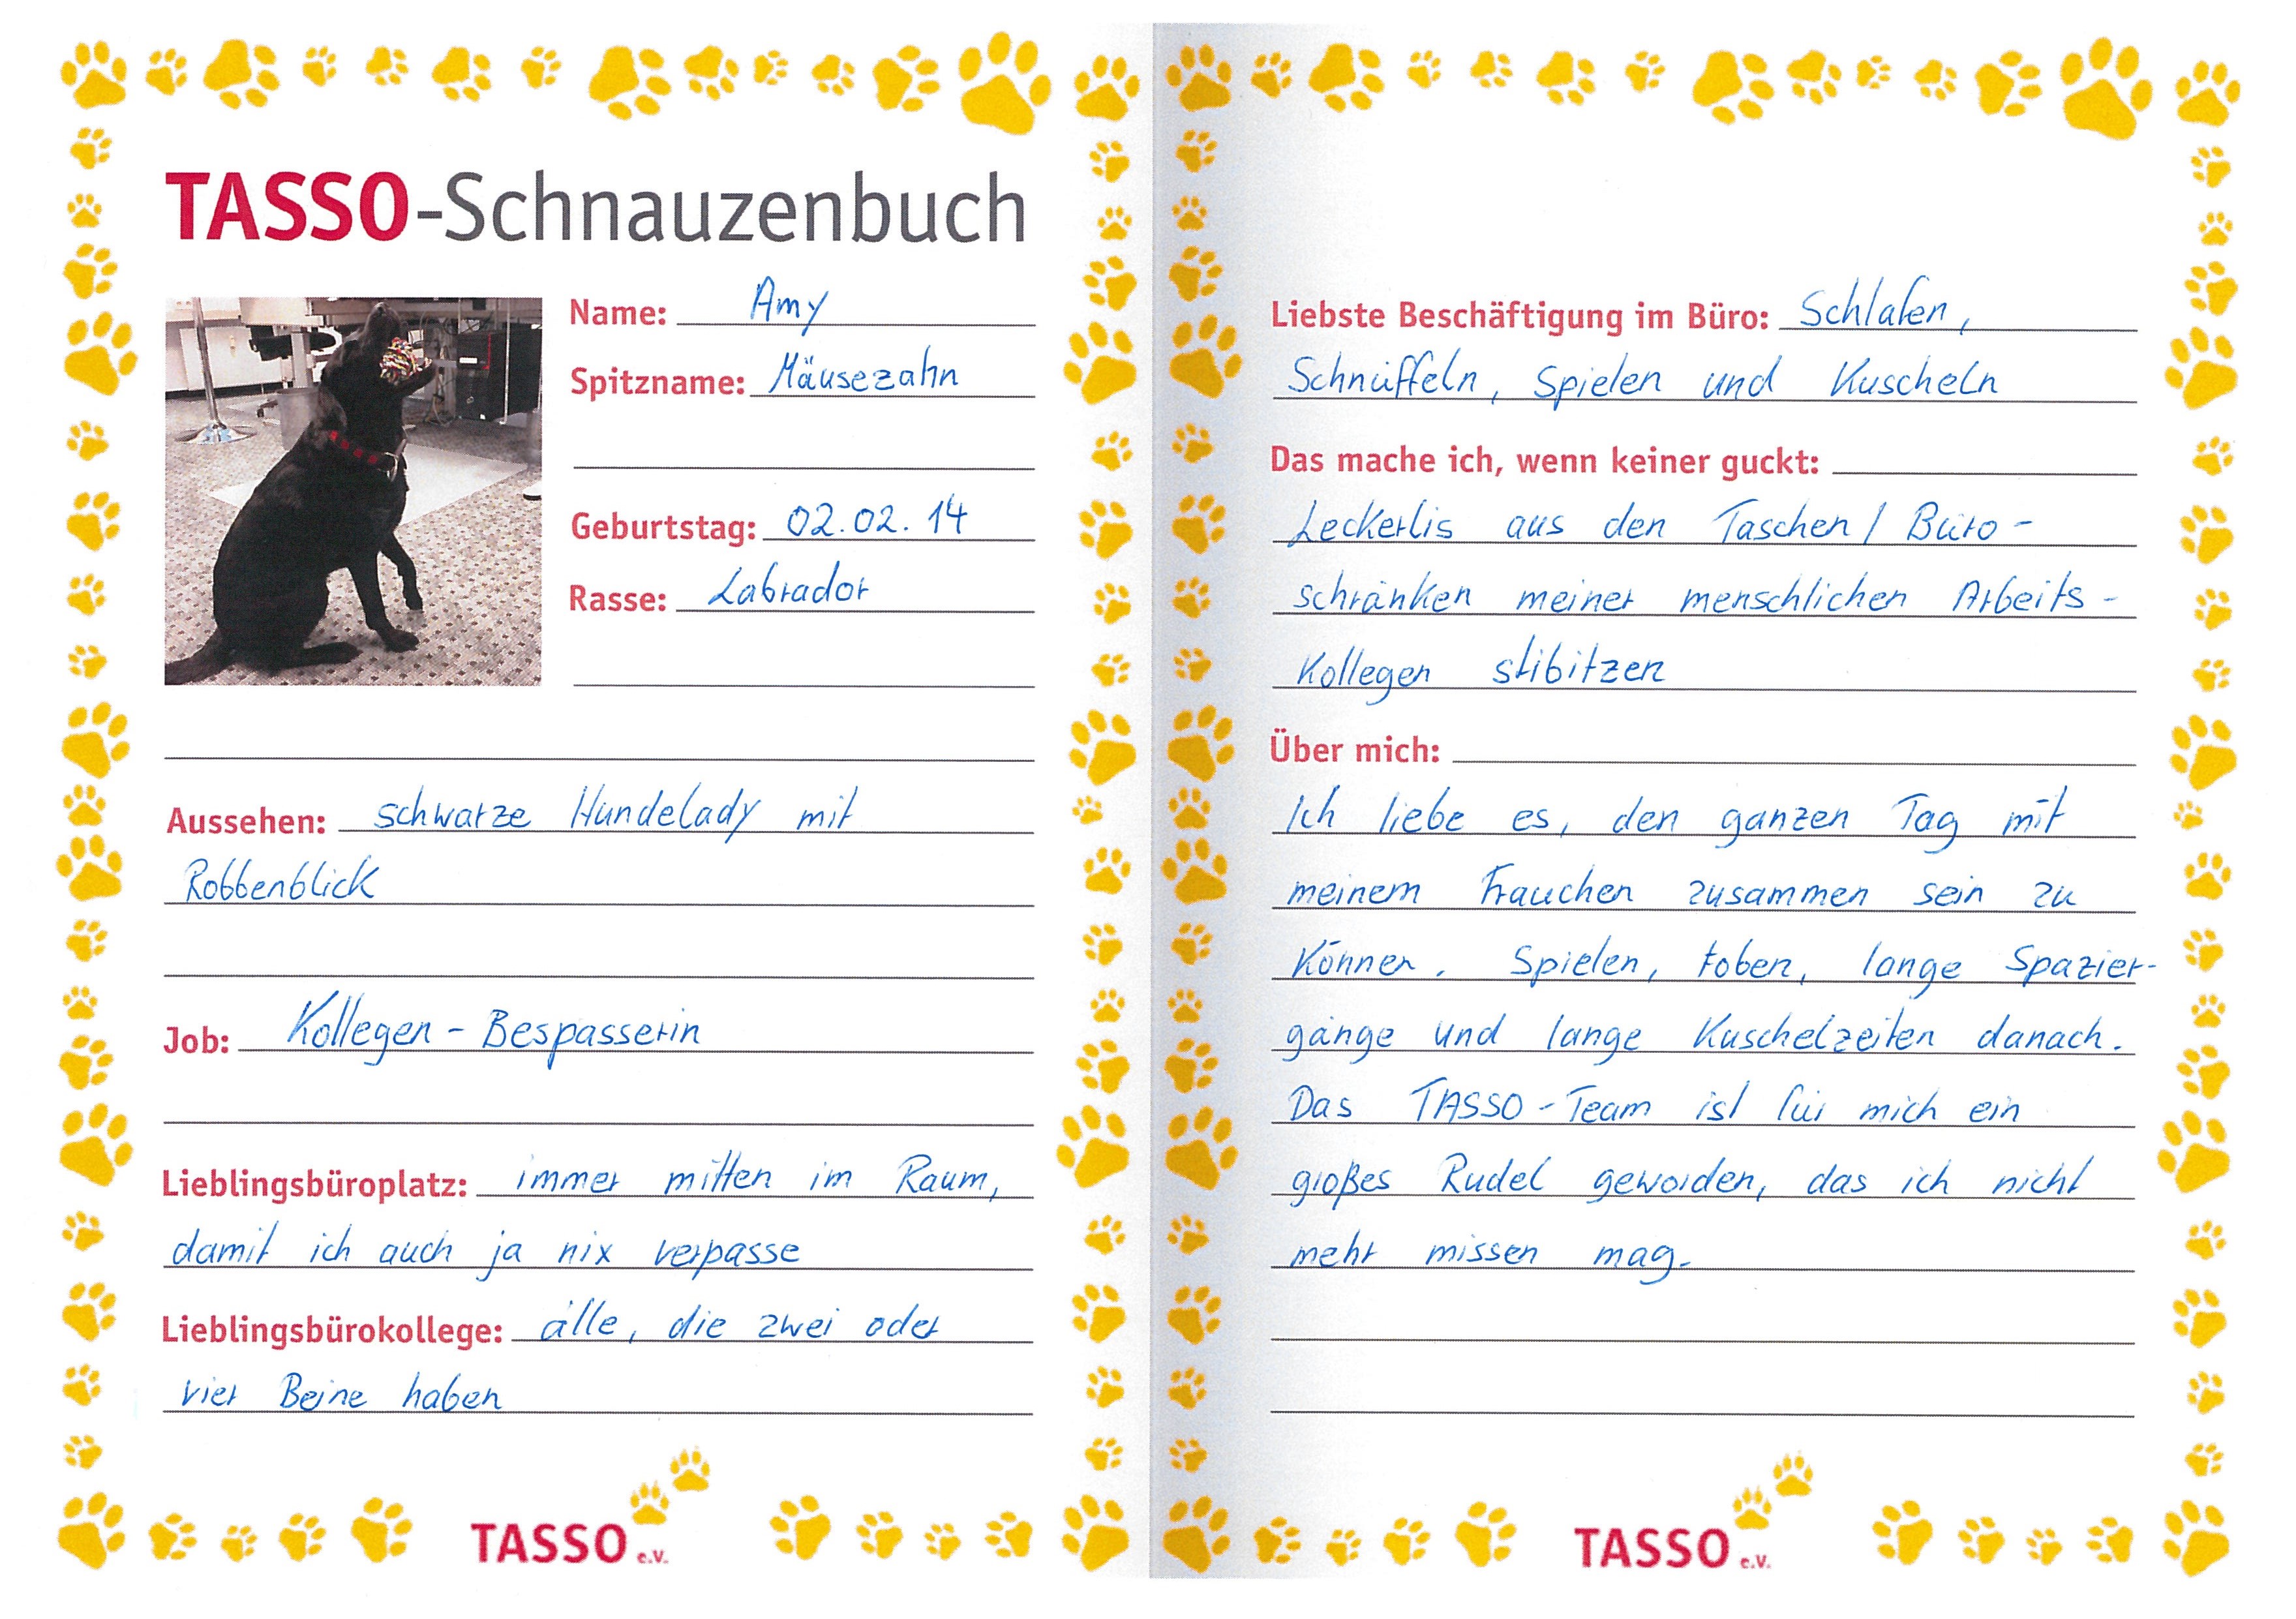 TASSO-Schnauzenbuch
Name: Amy
Spitzname: Mäusezahn
Geburtstag: 02.02.14
Rasse: Labrador
Aussehen: schwarze Hundelady mit
Robbenblick
Job: Kollegen-Bespasserin
Lieblingsbüroplatz: immer mitten im Raum,
damit ich auch ja nix verpasse
Lieblingsbürokollege: alle, die zwei oder
vier Beine haben
TASSO e.V.
Liebste Beschäftigung im Büro: Schlafen,
Schnüffeln, Spielen und Kuscheln
Das mache ich, wenn keiner guckt:
Leckerlis aus den Taschen/Büro-
schränken meiner menschlichen Arbeits-
Kollegen stibitzen
Über mich:
Ich liebe es, den ganzen Tag mit
meinem Frauchen zusammen sein zu
Können. Spielen, toben, lange Spazier-
gänge und lange Kuschelzeiten danach.
Das TASSO-Team ist für mich ein
großes Rudel geworden, das ich nicht
mehr missen mag.
TASSO e.V.